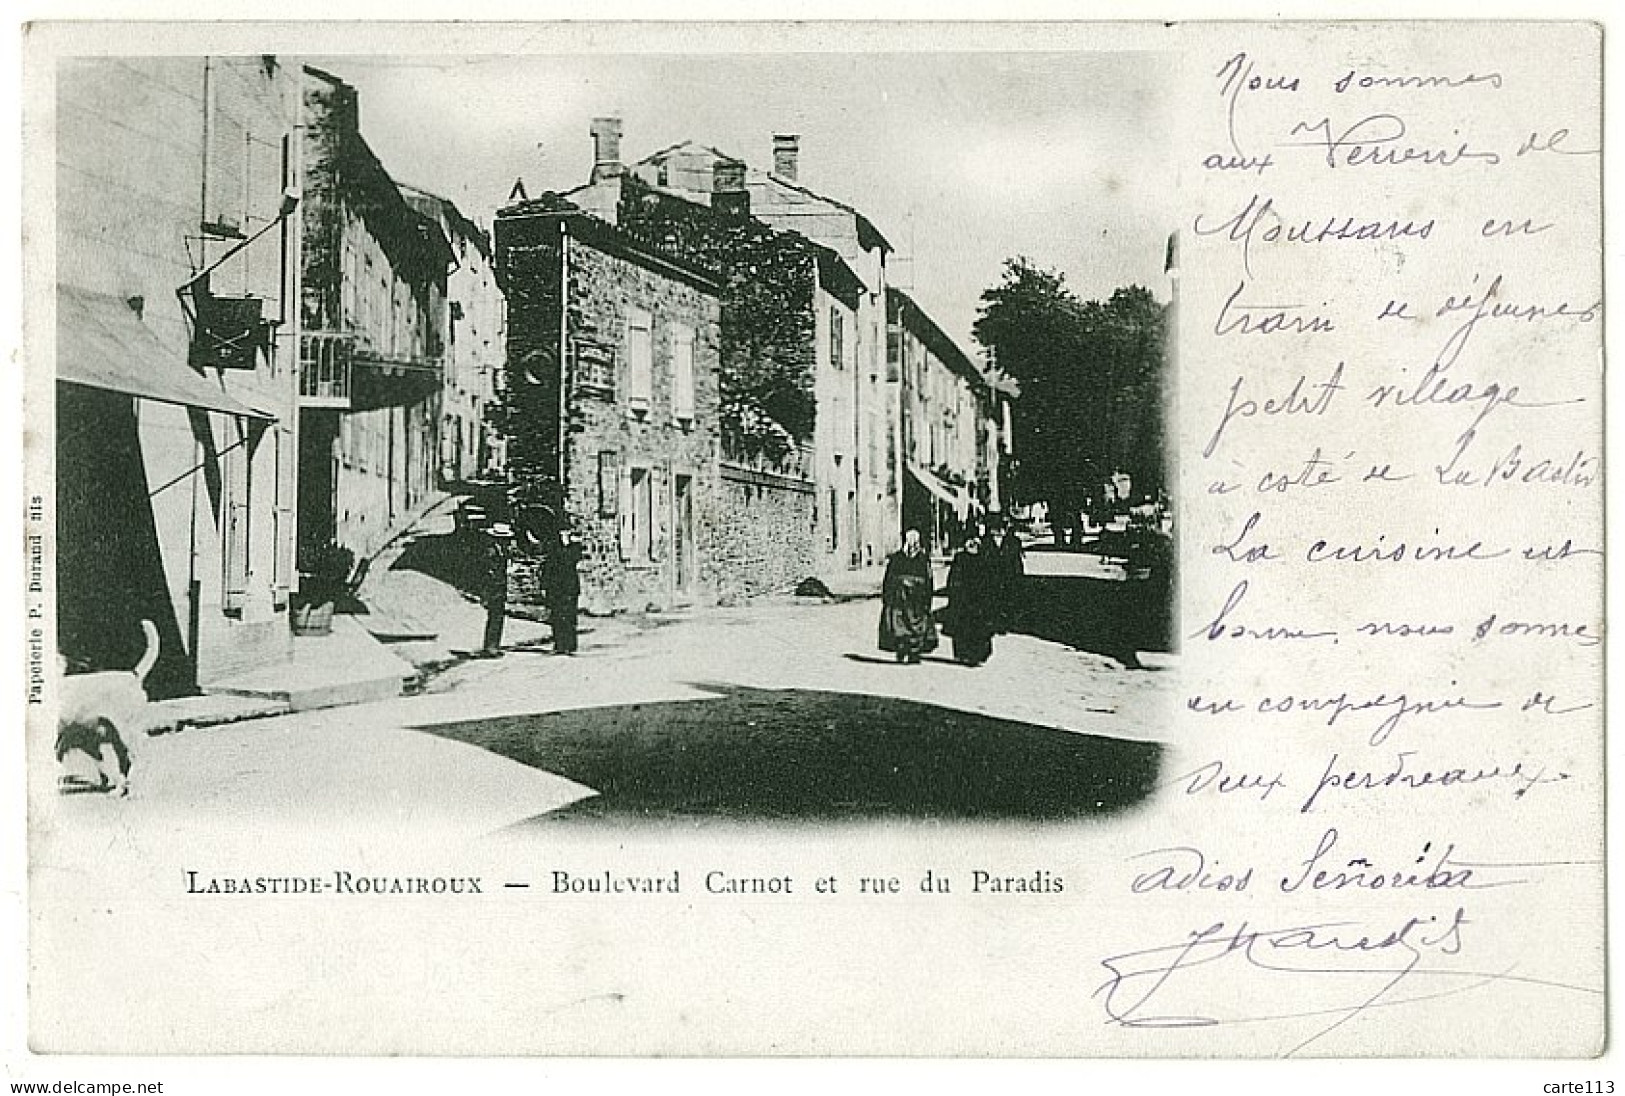 Nous sommes
aux Verreries de
Moussans en
train de déjeuner
petit village
à coté de LaBastide
La cuisine est
bonne, nous sommes
en compagnie de
deux perdreaux.
Adios Señorita
Papeterie P. Durand fils
LABASTIDE-ROUAIROUX — Boulevard Carnot et rue du Paradis
delcampe.net
carte113